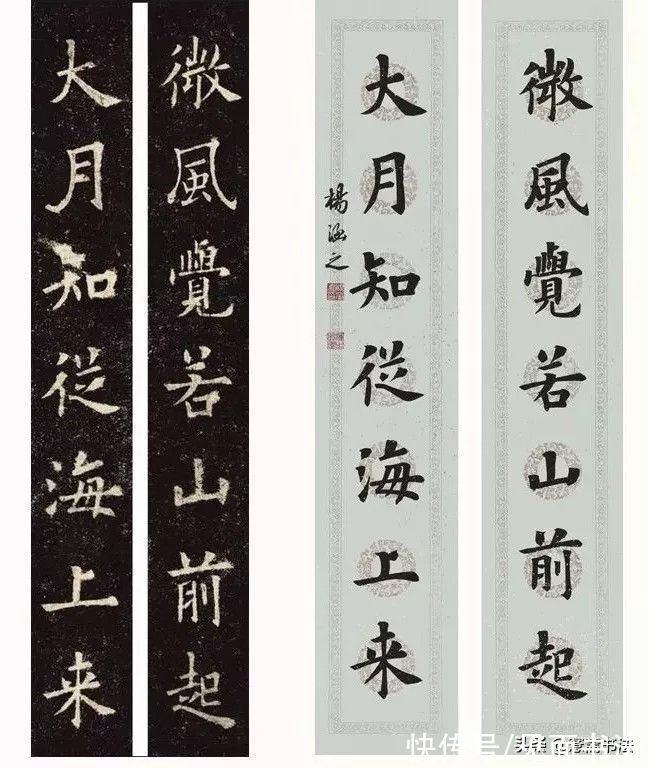 微風覺若山前起
大月知従海上来
微風覺若山前起
大月知従海上来
楊涵之
快传号/
头条 书法